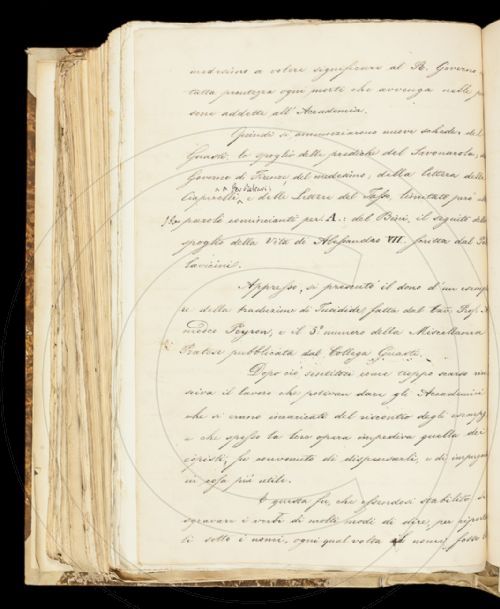 medesimo a volere significare al R. Governo
tutta prontezza ogni morte che avvenga nelle
sone addette all'Accademia.
Quindi si annunziarono nuove schede: del
Guasti, lo spoglio delle prediche del Savonarola,
Governo di Firenze del medesimo; della lettera della
e delle Lettere del Tasso, limitato però
parole comincianti per A.: del Bini, il seguito dello
spoglio della Vita di Alessandro VII. scritta dal Pal
lavicini.
Appresso, si presentò il dono d'un esemp
re della traduzione di Tucidide fatta dal Cav. Prof. A
medeo Peyron, e il 3.º numero della Miscellanea
Pratese pubblicata dal Collega Guasti.
Dopo ciò, sentitosi essere troppo scarso
sciva il lavoro che potevan dare gli Accademici
che si erano incaricati del riscontro degli esempj
e che spesso la loro opera impediva quella dei
copisti, fu convenuto di dispensarli, e di impiegar
in cosa più utile.
E questa fu, che essendosi stabilito, di
sgravare i verbi di molti modi di dire, per riporta
li sotto i nomi, ogni qual volta il nome fosse